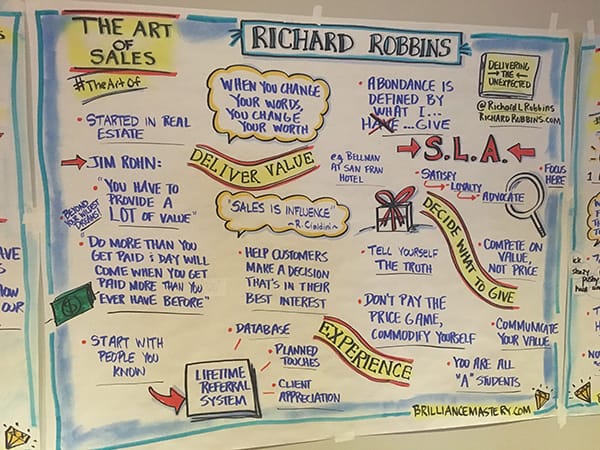 THE ART
OF
SALES
#TheArtOf
RICHARD ROBBINS
DELIVERING
THE
UNEXPECTED
@RichardLRobbins
RICHARDROBBINS.COM
• STARTED IN REAL
ESTATE
JIM ROHN:
• "YOU HAVE TO
PROVIDE A
LOT OF VALUE"
• BEYOND
YOUR WILDEST
DREAMS!
• "DO MORE THAN YOU
GET PAID & DAY WILL
COME WHEN YOU GET
PAID MORE THAN YOU
EVER HAVE BEFORE"
• START WITH
PEOPLE YOU
KNOW
LIFETIME
REFERRAL
SYSTEM
• DATABASE
• PLANNED
TOUCHES
• CLIENT
APPRECIATION
WHEN YOU CHANGE
YOUR WORDS,
YOU CHANGE
YOUR WORTH
DELIVER VALUE
e.g. BELLMAN
AT SAN FRAN
HOTEL
"SALES IS INFLUENCE"
~R. Cialdini~
• HELP CUSTOMERS
MAKE A DECISION
THAT'S IN THEIR
BEST INTEREST
EXPERIENCE
• ABONDANCE IS
DEFINED BY
WHAT I...
HAVE ...GIVE
S.L.A.
SATISFY
LOYALTY
ADVOCATE
• FOCUS
HERE
DECIDE WHAT TO GIVE
• TELL YOURSELF
THE TRUTH
• DON'T PAY THE
PRICE GAME,
COMMODIFY YOURSELF
• COMPETE ON
VALUE,
NOT PRICE
• COMMUNICATE
YOUR VALUE
• YOU ARE ALL
"A" STUDENTS
BRILLIANCEMASTERY.COM